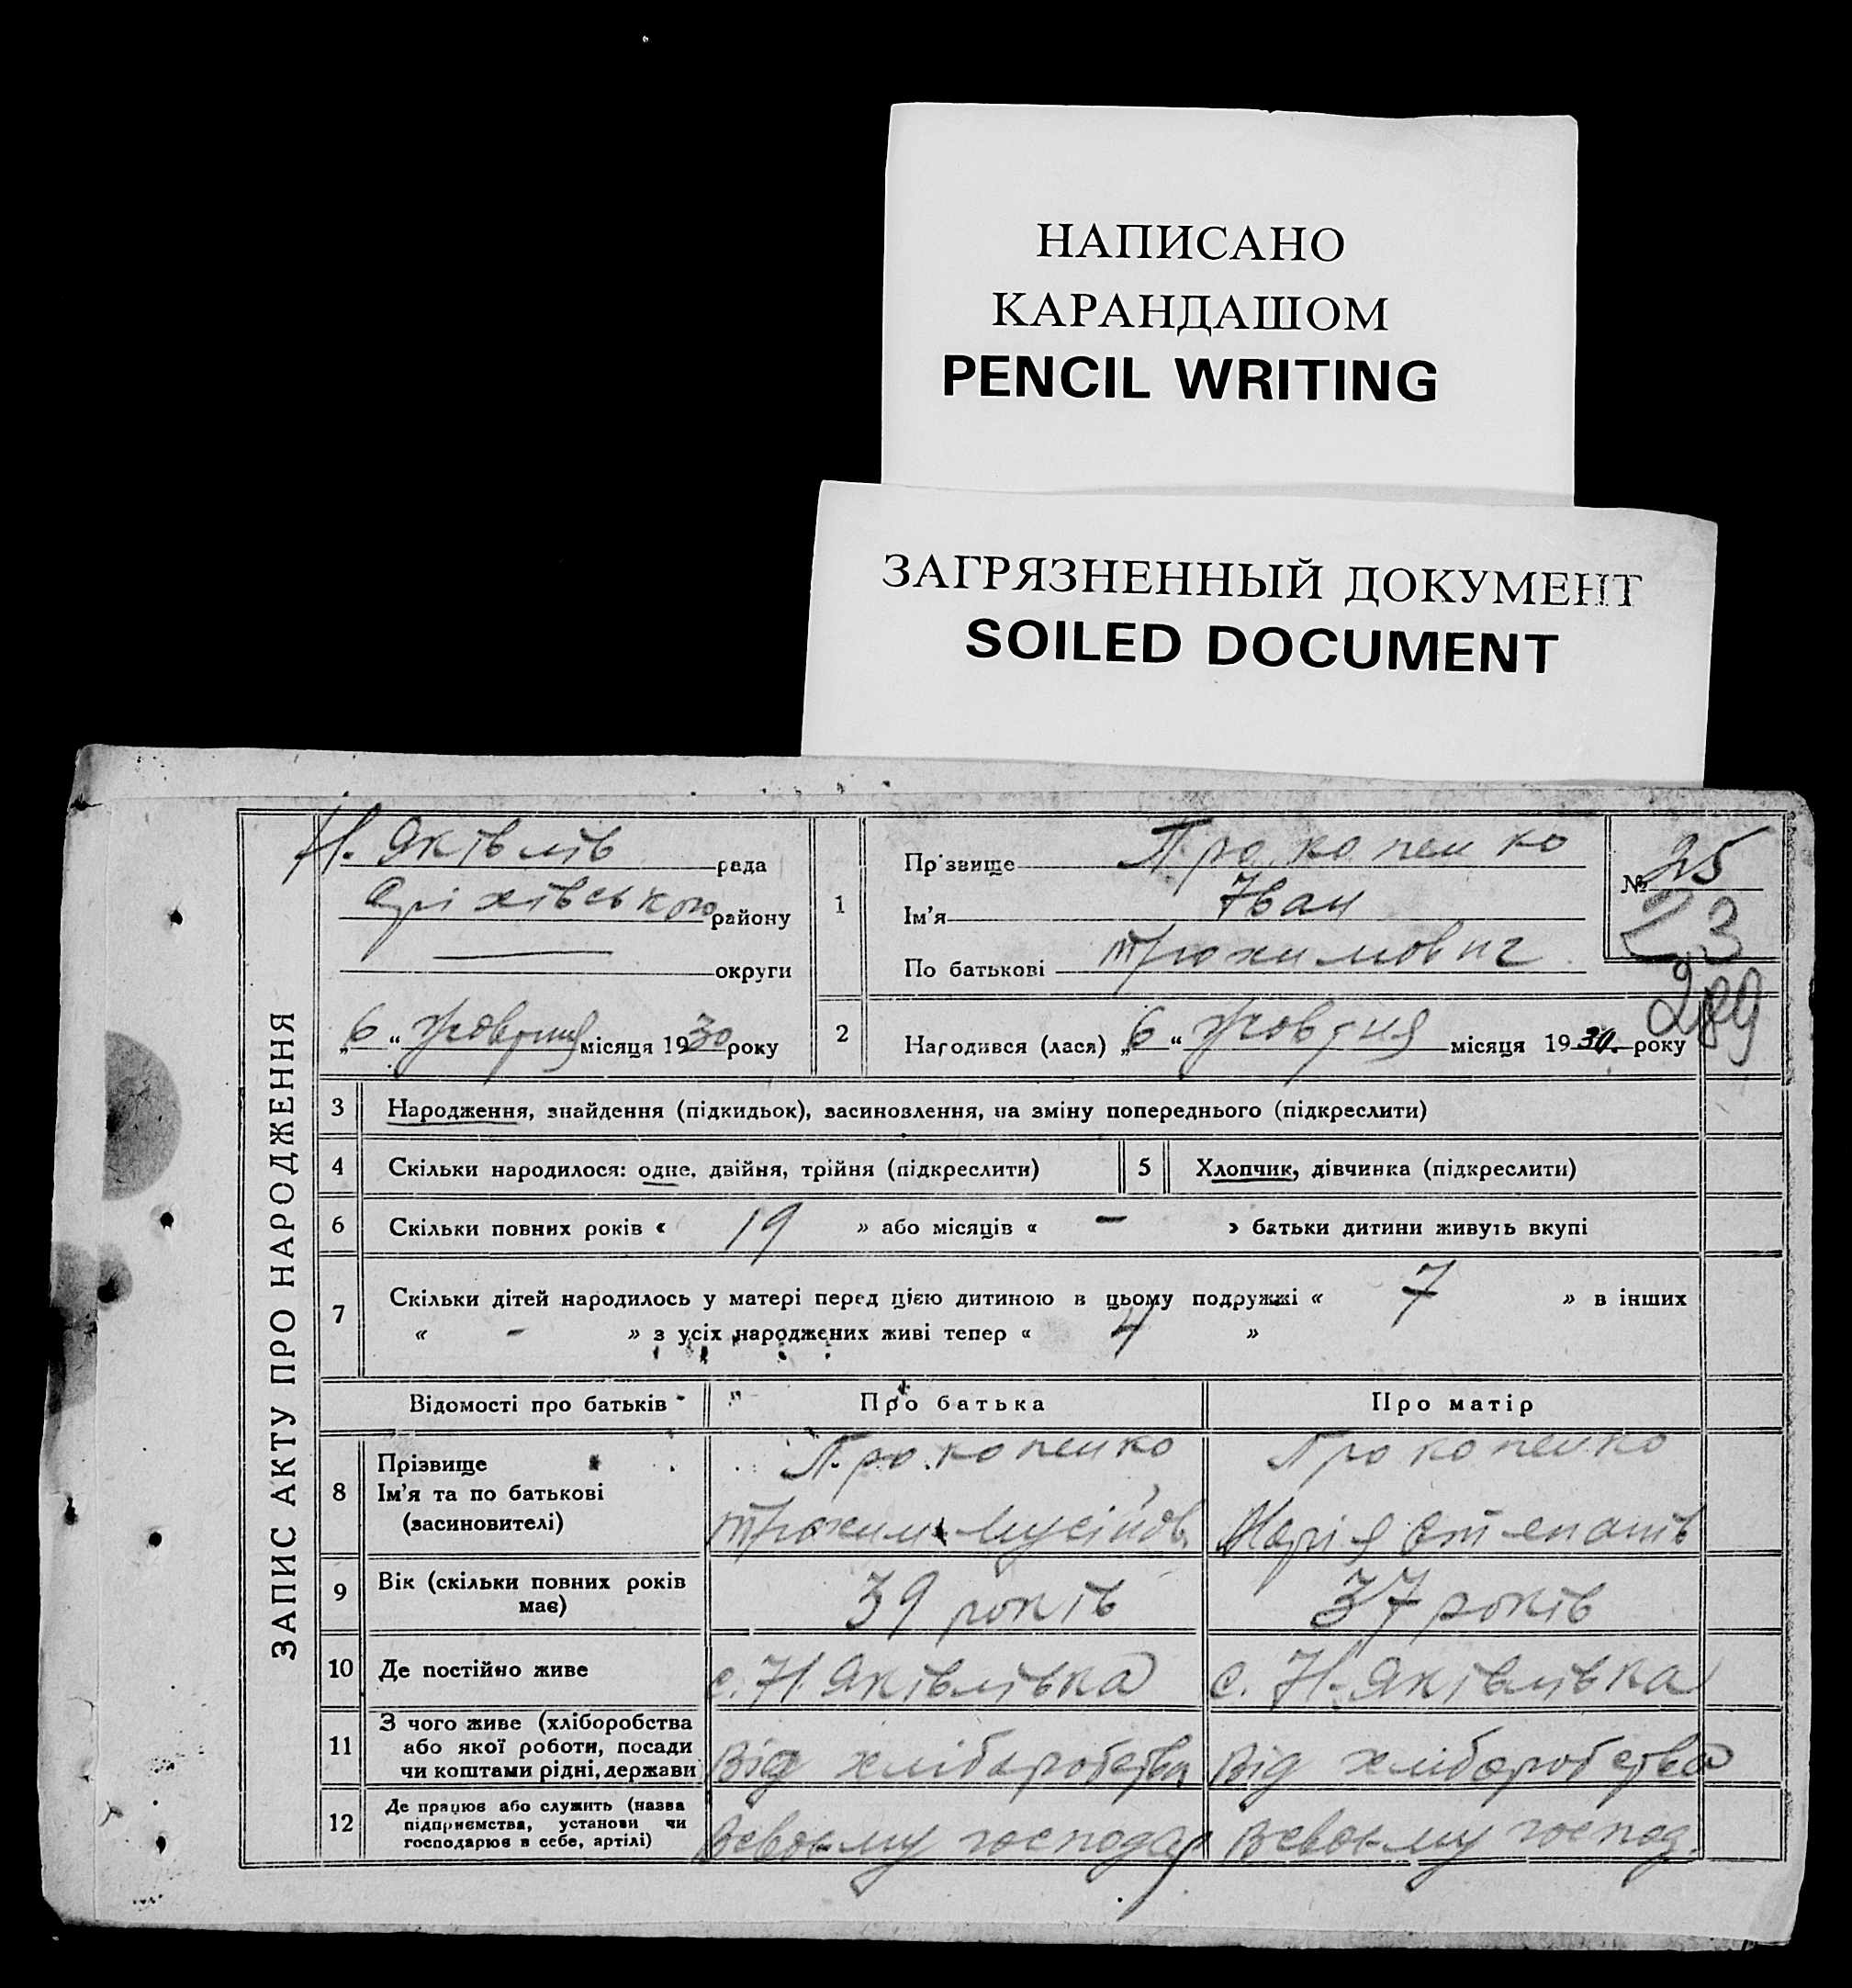 НАПИСАНО
КАРАНДАШОМ
PENCIL WRITING
ЗАГРЯЗНЕННЫЙ ДОКУМЕНТ
SOILED DOCUMENT
ЗАПИС АКТУ ПРО НАРОДЖЕННЯ
Н. Яківлів рада
Оріхівського району
— округи
„6“ Жовтня місяця 1930 року
1
Прізвище Прокопенко
Ім'я Іван
По батькові Трохимович
№ 25
23
289
2 Народився (лася) „6“ Жовтня місяця 1930. року
3 Народження, знайдення (підкидьок), засиновлення, на зміну попереднього (підкреслити)
4 Скільки народилося: одне, двійня, трійня (підкреслити) 5 Хлопчик, дівчинка (підкреслити)
6 Скільки повних років « 19 » або місяців « – » батьки дитини живуть вкупі
7 Скільки дітей народилось у матері перед цією дитиною в цьому подружжі « 7 » в інших
« - » з усіх народжених живі тепер « 4 »
Відомості про батьків Про батька Про матір
8 Прізвище Прокопенко Прокопенко
Ім'я та по батькові
(засиновителі) Трохим Мусійов. Марія Степанів
9 Вік (скільки повних років має) 39 років 37 років
10 Де постійно живе с. Н. Яківлівка с. Н. Яківлівка
11 З чого живе (хліборобства
або якої роботи, посади
чи коштами рідні, держави Від хліборобства Від хліборобства
12 Де працює або служить (назва
підприємства, установи чи
господарює в себе, артілі) Всвоьму господар Всвоьму господ.